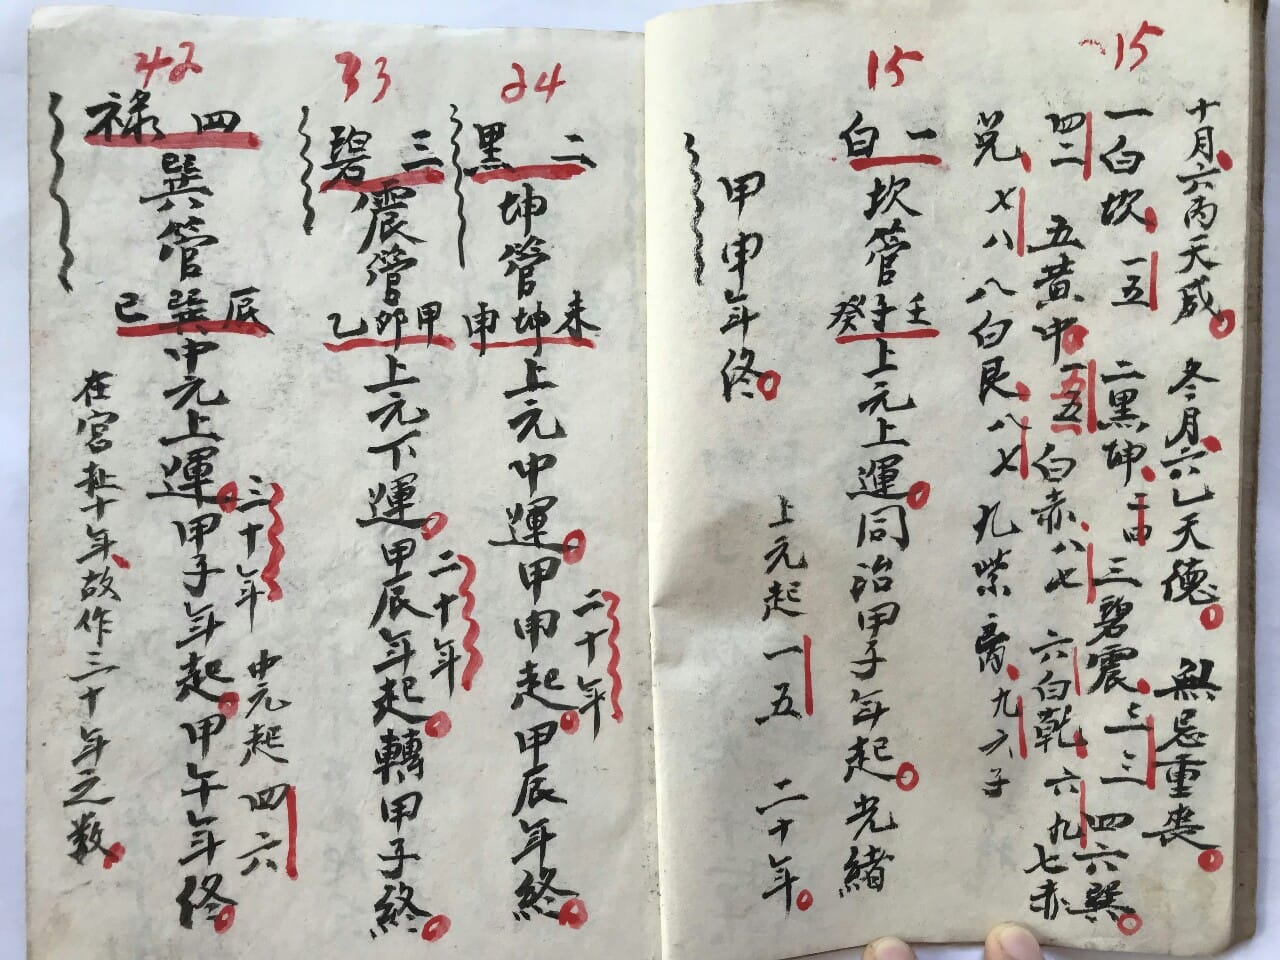 15
十月六丙天成 冬月六乙天德 無忌重喪
一白坎 一五 二黑坤 二四 三碧震 三三 四六巽
四二 五黄中 一五 白赤 八七 六白乾 六九 七赤
兌 七八 八白艮 八七 九紫离 九六子
15
一白 坎管 壬子癸 上元上運 同治甲子年起 光緒
甲申年終
上元起 一五 二十年
24
二黑 坤管 未坤申 上元中運 甲申起 甲辰年終
二十年
33
三碧 震管 甲卯乙 上元下運 甲辰年起 轉甲子終
二十年
42
四禄 巽管 辰巽巳 中元上運 甲子年起 甲午年終
三十年 中元起 四六
在宮 十年故作三十年之数